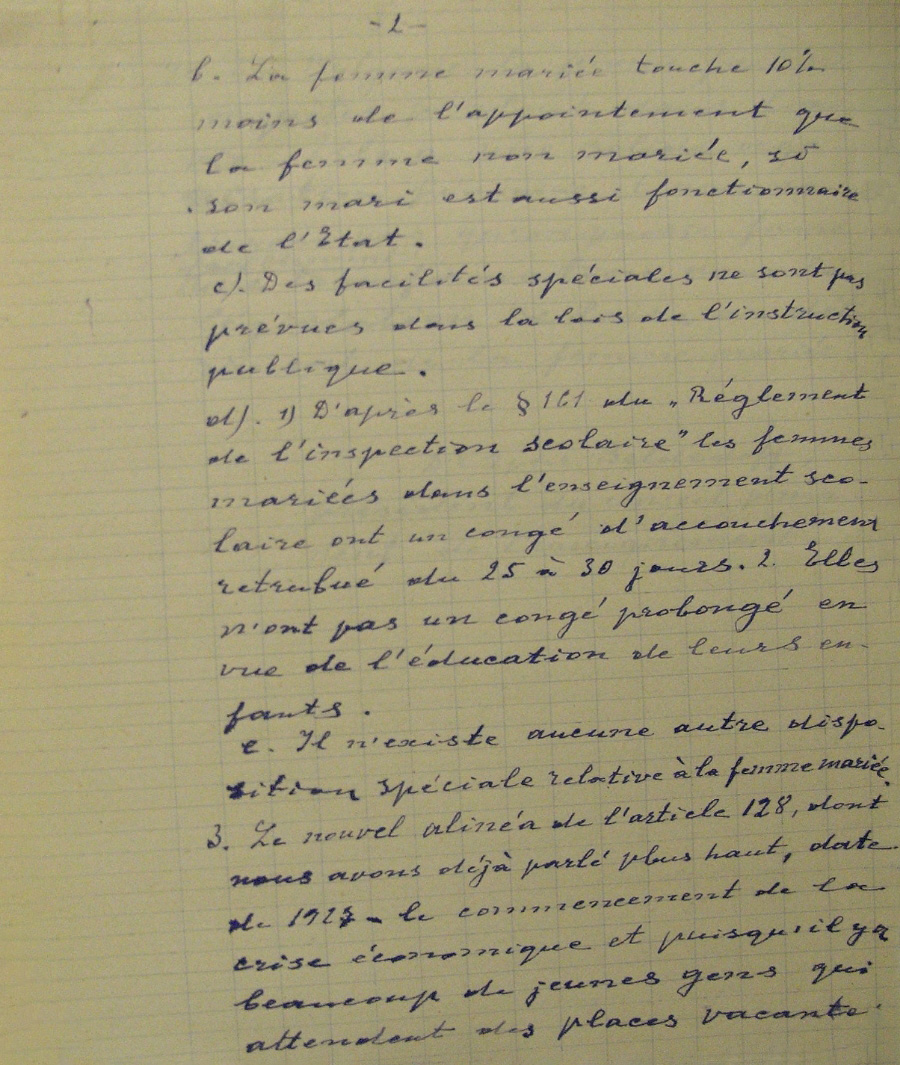 -2-
b. La femme mariée touche 10%
moins de l'appointement que
la femme non mariée, si
son mari est aussi fonctionnaire
de l'Etat.
c). Des facilités spéciales ne sont pas
prévues dans la lois de l'instruction
publique.
d). 1) D'après le § 161 du „Réglement
de l'inspection scolaire" les femmes
mariées dans l'enseignement sco-
laire ont un congé d'accouchement
retrubué du 25 à 30 jours. 2. Elles
n'ont pas un congé prolongé en
vue de l'éducation de leurs en-
fants.
e. Il n'existe aucune autre dispo-
sition spéciale relative à la femme mariée.
3. Le nouvel alinéa de l'article 128, dont
nous avons déjà parlé plus haut, date
de - le commencement de la
crise économique et puisqu'il ya
beaucoup de jeunes gens qui
attendent des places vacante